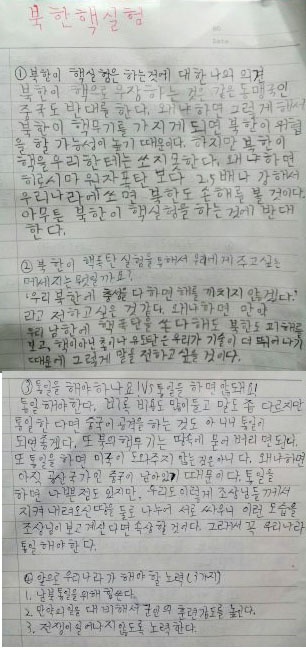 북한핵실험
① 북한이 핵실험은 하는것에 대한 나의 의견
북한이 핵으로 무장하는 것은 같은 동맹국인
중국도 반대를 한다. 왜냐하면 그렇게 해서
북한이 핵무기를 가지게 되면 북한이 위협
을 할 가능성이 높기 때문이다. 하지만 북한이
핵을 우리한테는 쏘지 못한다. 왜냐하면
히로시마 원자폭탄 보다 2.5배나 강해서
우리나라에 쏘면 북한도 손해를 볼 것이다.
아무튼 북한이 핵실험을 하는것에 반대
한다.
② 북한이 핵폭탄 실험을 통해서 우리에게 주고싶은
메세지는 뭐일까요?
'우리 북한에 충성을 다하면 해를 끼치지 않겠다.'
라고 전하고 싶은 것 같다. 왜냐하면 만약
우리 남한에 핵폭탄을 쏜다해도 북한도 피해를
보고, 핵이아닌 총이나 유도탄은 우리가 기술이 더 뛰어나기
때문에 그렇게 말을 전하고 싶을 것이다.
③ 통일을 해야하나요! VS 통일을 하면 안돼요!
통일 해야한다. 비록 비용도 많이 들고 말도 좀 다르지만
통일 한다면 중국이 공격을 하는 것도 아니며 통일이
되면 좋겠다. 또 핵무기는 땅속에 묻어 버리면 된다.
또 통일을 하면 미국이 도와주지 않는 것은 아니다. 왜냐하면
아직 공산국가인 중국이 남아있기 때문이다. 통일을
하면 나쁜점도 있지만, 우리도 이렇게 조상님들께서
지켜 내려오신 땅을 둘로 나누어 서로 싸우니 이런 모습을
조상님이 보고 계신다면 속상할 것이다. 그러므로 꼭 우리나라
통일 해야 한다.
④ 앞으로 우리나라가 해야 할 노력 (3가지)
1. 남북통일을 위해 힘쓴다.
2. 만약의일을 대비해서 군인의 훈련강도를 높인다.
3. 전쟁이 일어나지 않도록 노력한다.